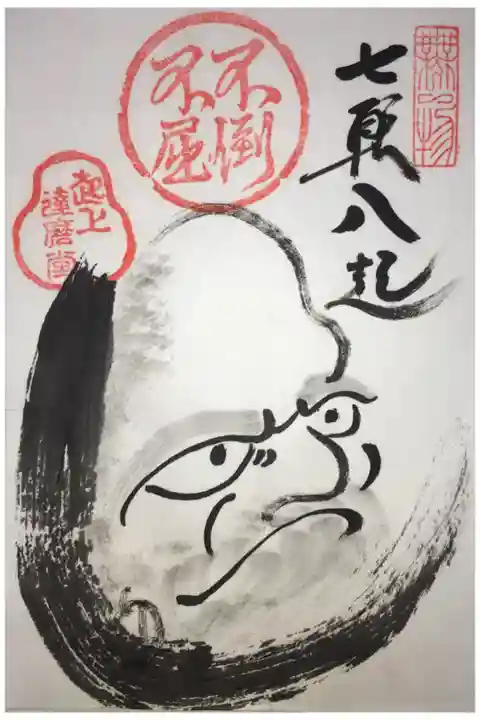 七転八起
不倒
不屈
起上
達磨堂